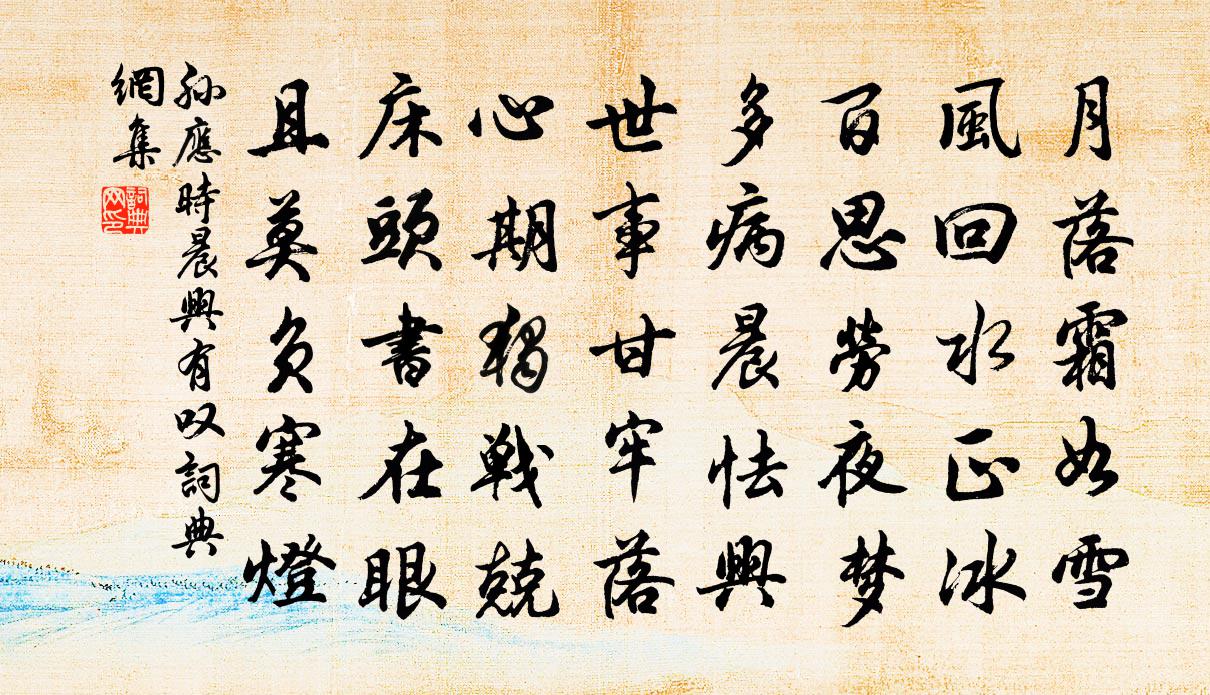 月落霜如雪
風回水正冰
百思勞夜梦
多病晨怯興
世事甘牢落
心期獨戰兢
床頭書在眼
且莫負寒燈
孫應時晨興有叹詞典
網集
詞典
网印